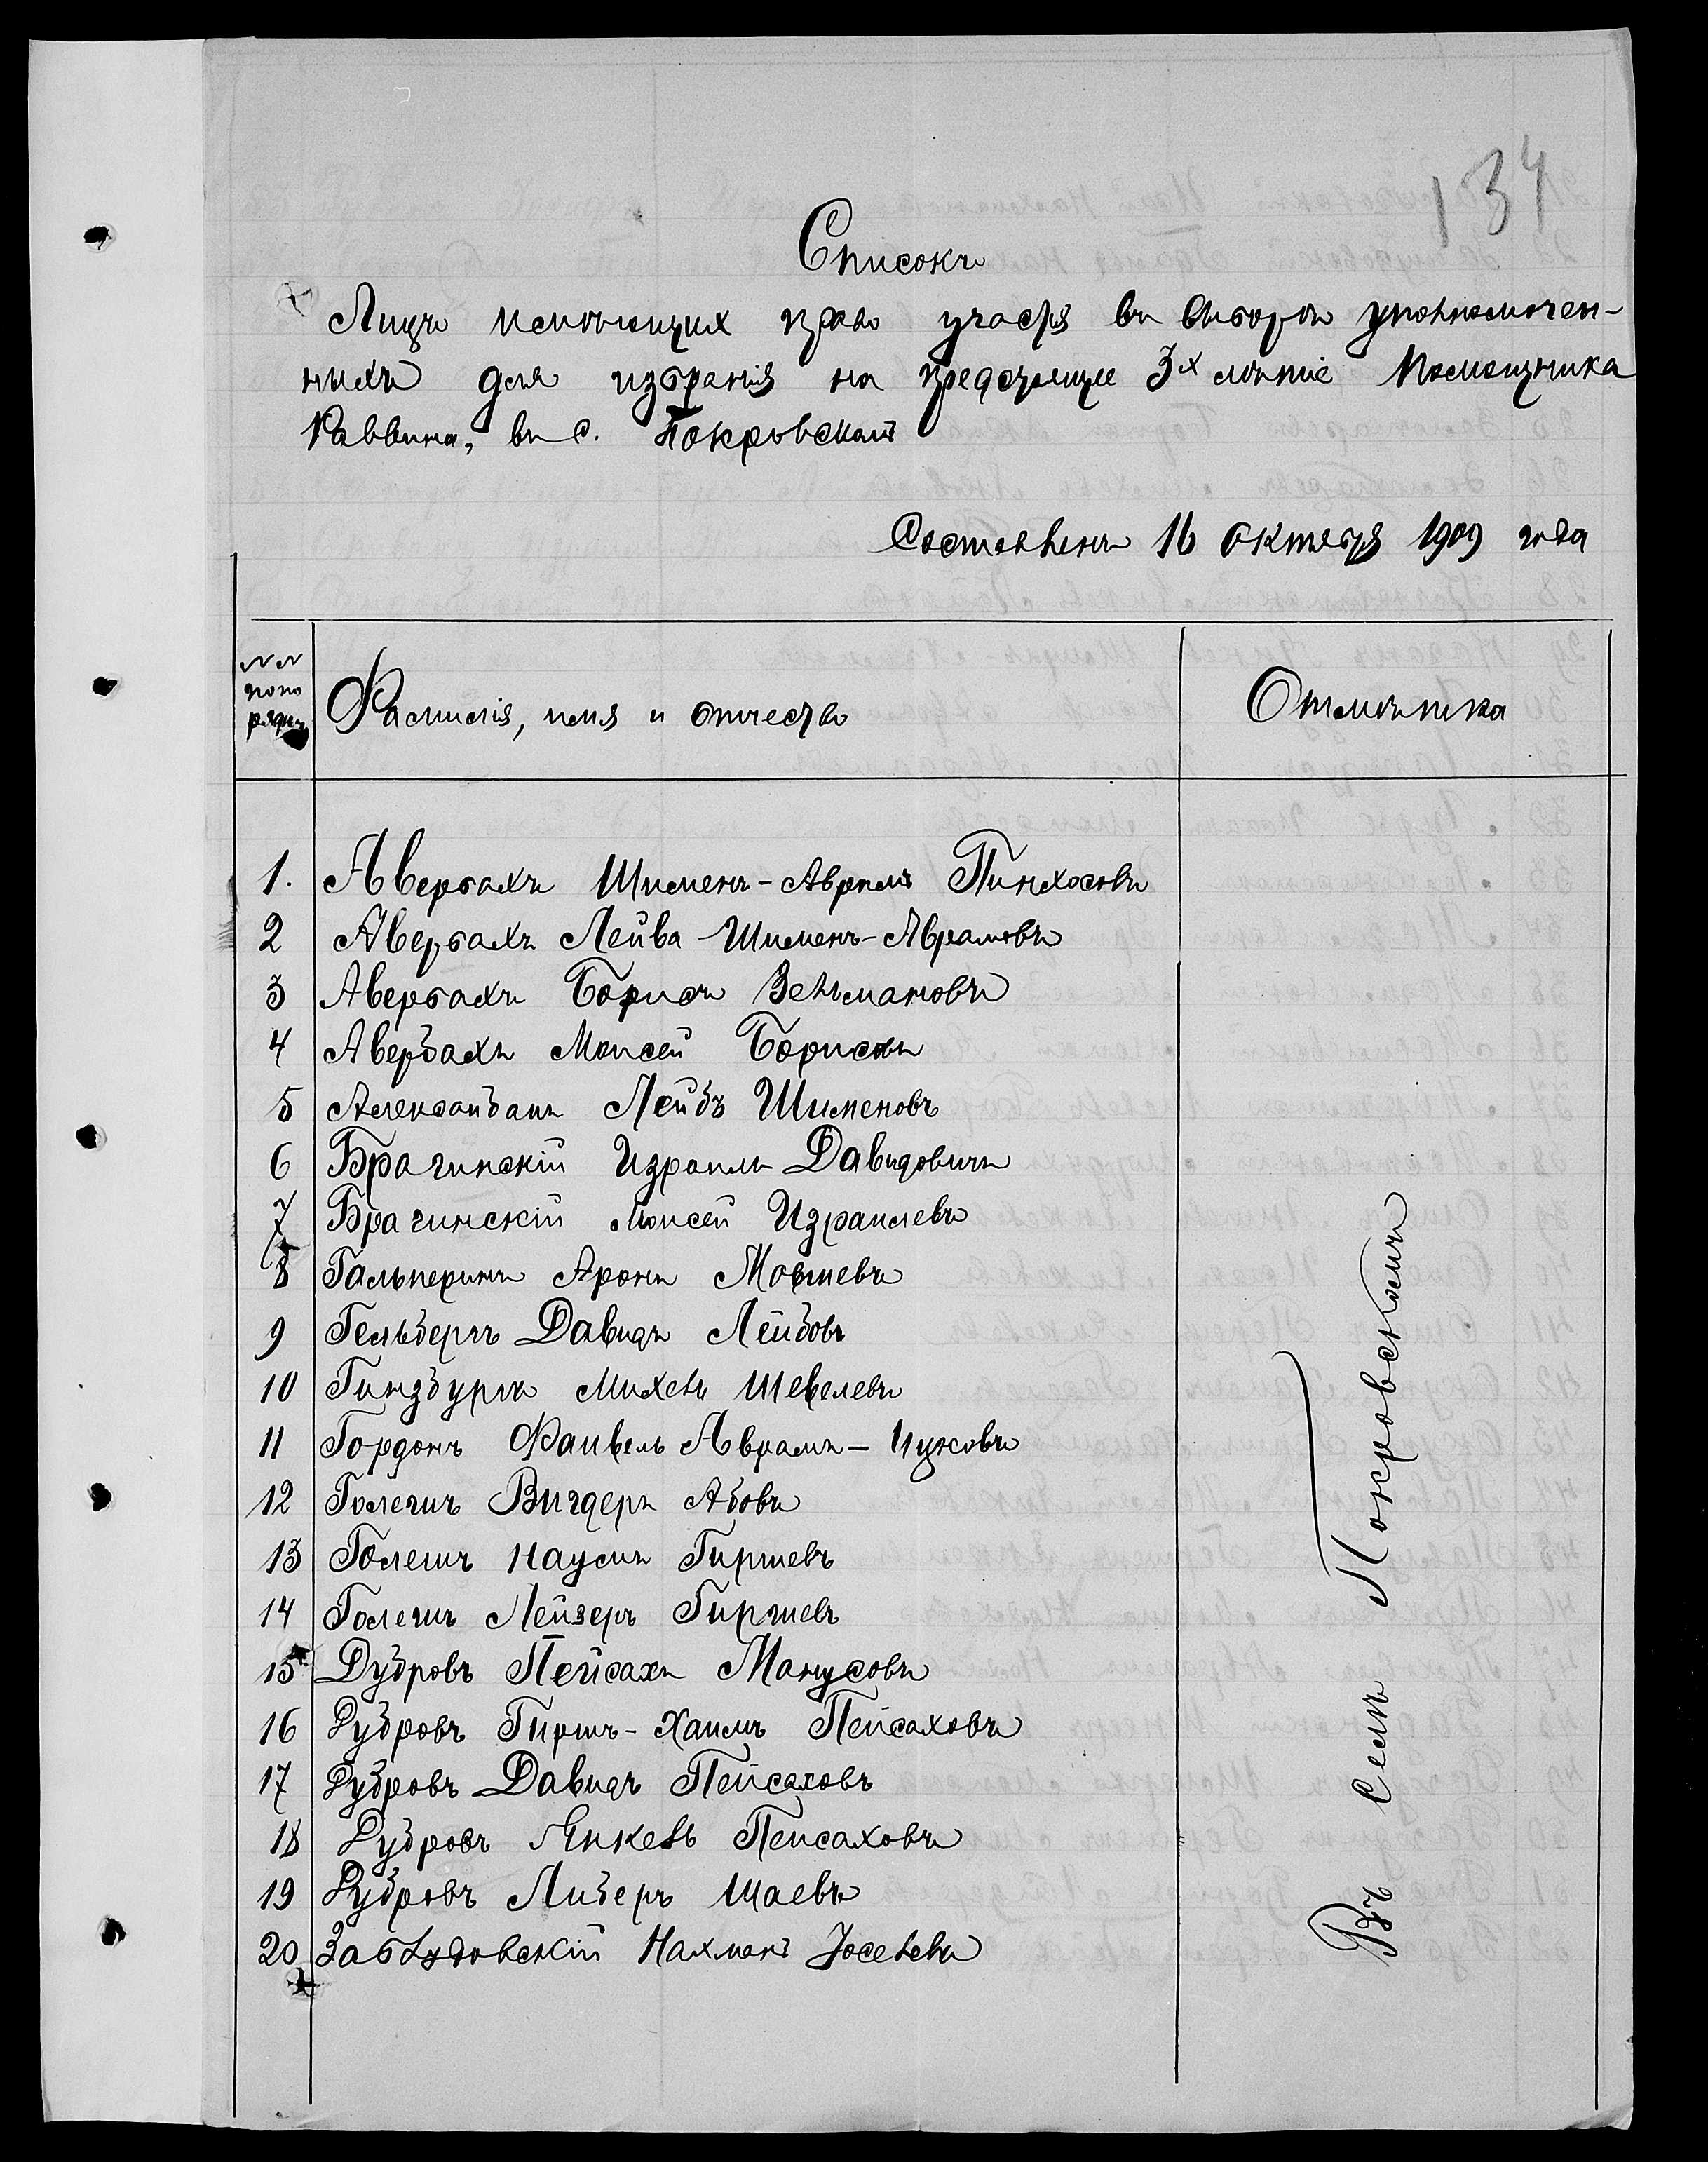 134
Списокъ
Лицъ имѣющихъ право участія въ выборѣ уполномочен-
ныхъ для избранія на предстоящее 3х лѣтіе Помощника
Раввина, въ с. Покровской
Составленъ 16 октября 1909 года
№ №
по по
рядку
Фамилія, имя и отчество
Отмѣтка
1. Авербахъ Шименъ-Аврамъ Пинхосовъ
2 Авербахъ Лейба Шименъ-Аврамовъ
3 Авербахъ Борисъ Зельмановъ
4 Авербахъ Моисей Борисовъ
5 Лейбъ Шименовъ
6 Брагинскій Израиль Давидовичъ
7 Брагинскій Моисей Израилевъ
8 Гальперинъ Аронъ Мовшевъ
9 Гельберъ Давидъ Лейбовъ
10 Гинзбургъ Михель Шевелевъ
11 Гордонъ Файвель Аврамъ-Ицковъ
12 Голегшъ Вигдеръ Абовъ
13 Голешъ Наумъ Гиршевъ
14 Голешъ Лейзеръ Гиршевъ
15 Дубровъ Пейсахъ Манусовъ
16 Дубровъ Гиршъ-Хаимъ Пейсаховъ
17 Дубровъ Давидъ Пейсаховъ
18 Дубровъ Янкель Пейсаховъ
19 Дубровъ Либеръ Шаевъ
20 Заблудовскій Нахманъ Іоселевъ
Въ Селѣ Покровскомъ